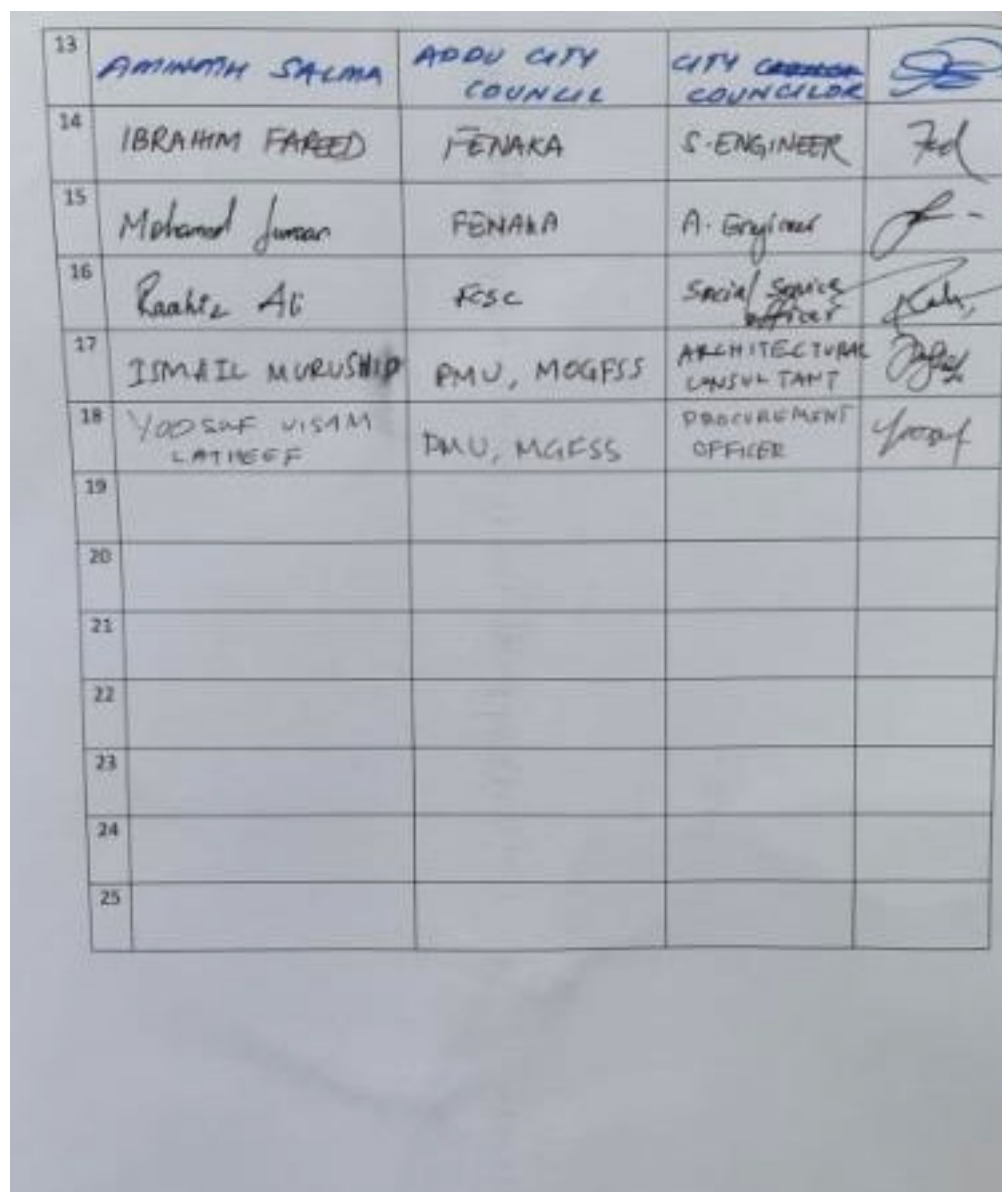 13 AMINATH SALMA ADDU CITY COUNCIL CITY COUNCILOR
14 IBRAHIM FAREED FENAKA S. ENGINEER
15 Mohamed Jumaan FENAKA A. Engineer
16 Raahiz Ali FCSC Social Service officer
17 ISMAIL MURUSHID PMU, MOGFSS ARCHITECTURAL CONSULTANT
18 YOOSUF VISAM LATHEEF PMU, MGFSS PROCUREMENT OFFICER Yoosuf
19
20
21
22
23
24
25